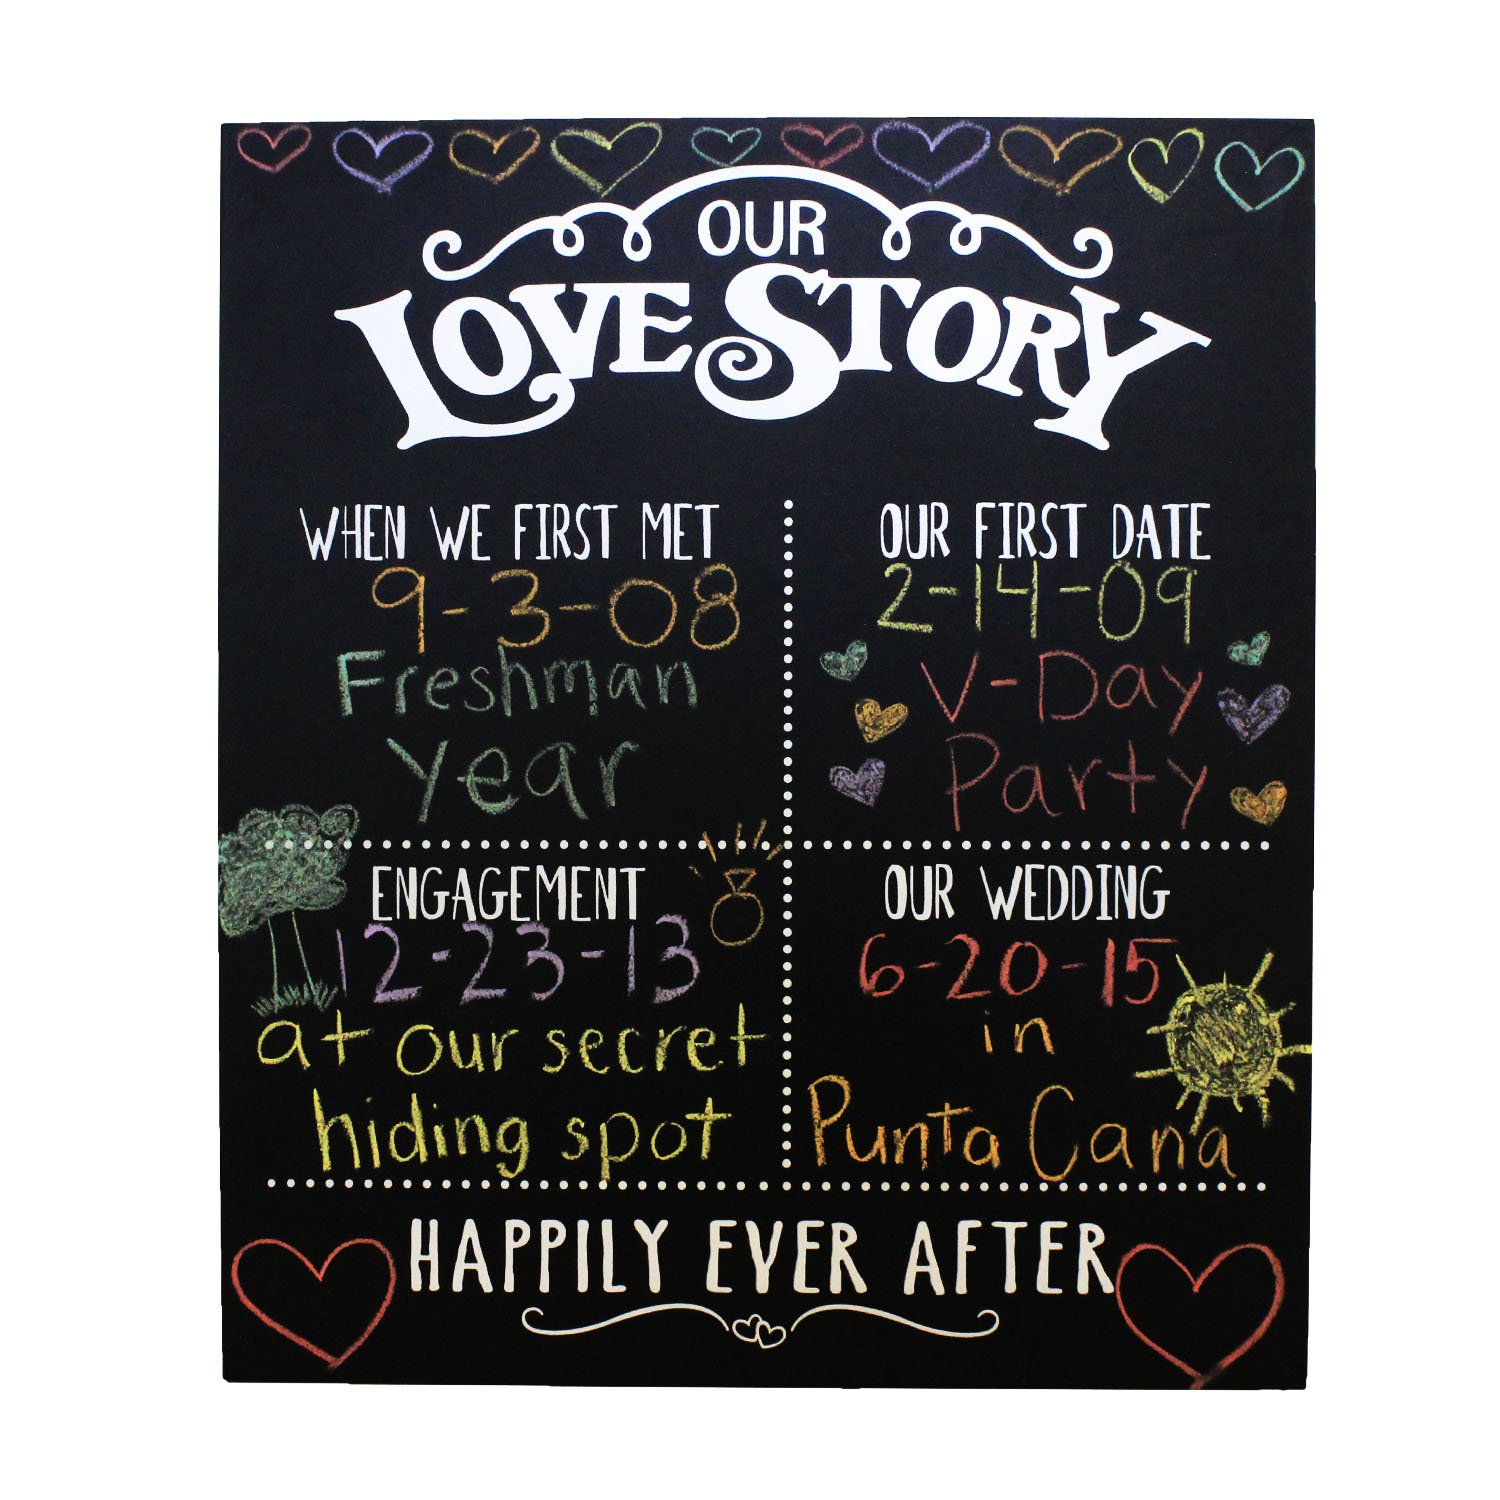 OUR
LOVE STORY
WHEN WE FIRST MET
9-3-08
Freshman
year
OUR FIRST DATE
2-14-09
V-Day
Party
ENGAGEMENT
12-23-13
at our secret
hiding spot
OUR WEDDING
6-20-15
in
Punta Cana
HAPPILY EVER AFTER